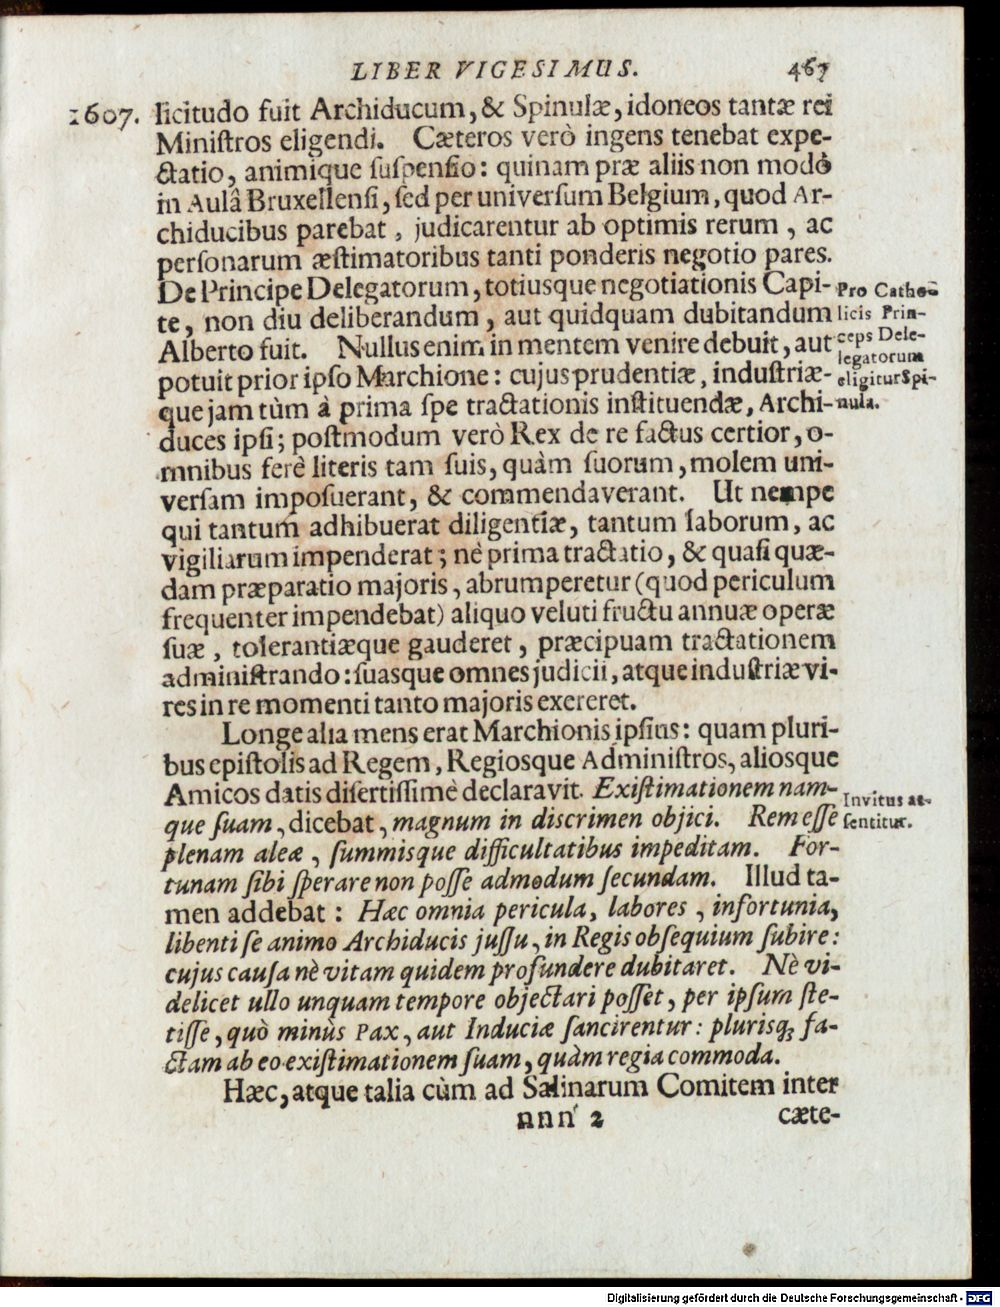 LIBER VIGESIMUS. 467
1607. licitudo fuit Archiducum, & Spinulæ, idoneos tantæ rei
Miniſtros eligendi. Cæteros verò ingens tenebat expe-
ctatio, animique ſuſpenſio: quinam præ aliis non modò
in Aulâ Bruxellenſi, ſed per univerſum Belgium, quod Ar-
chiducibus parebat, judicarentur ab optimis rerum, ac
perſonarum æſtimatoribus tanti ponderis negotio pares.
De Principe Delegatorum, totiusque negotiationis Capi-
te, non diu deliberandum, aut quidquam dubitandum
Alberto fuit. Nullus enim in mentem venire debuit, aut
potuit prior ipſo Marchione: cujus prudentiæ, induſtriæ-
que jam tùm à prima ſpe tractationis inſtituendæ, Archi-
duces ipſi; poſtmodum verò Rex de re factus certior, o-
mnibus ferè literis tam ſuis, quàm ſuorum, molem uni-
verſam impoſuerant, & commendaverant. Ut nempe
qui tantum adhibuerat diligentiæ, tantum laborum, ac
vigiliarum impenderat; nè prima tractatio, & quaſi quæ-
dam præparatio majoris, abrumperetur (quod periculum
frequenter impendebat) aliquo veluti fructu annuæ operæ
ſuæ, tolerantiæque gauderet, præcipuam tractationem
adminiſtrando: ſuasque omnes judicii, atque induſtriæ vi-
res in re momenti tanto majoris exereret.
Pro Catho-
licis Prin-
ceps Dele-
legatorum
eligitur Spi-
nula.
Longe alia mens erat Marchionis ipſius: quam pluri-
bus epiſtolis ad Regem, Regiosque Adminiſtros, aliosque
Amicos datis diſertiſſimè declaravit. Exiſtimationem nam-
que ſuam, dicebat, magnum in discrimen objici. Rem eſſe
plenam aleæ, ſummisque difficultatibus impeditam. For-
tunam ſibi ſperare non poſſe admodum ſecundam. Illud ta-
men addebat: Hæc omnia pericula, labores, infortunia,
libenti ſe animo Archiducis juſſu, in Regis obſequium ſubire:
cujus cauſa nè vitam quidem profundere dubitaret. Nè vi-
delicet ullo unquam tempore objectari poſſet, per ipſum ſte-
tiſſe, quò minùs Pax, aut Induciæ ſancirentur: plurisq; fa-
ctam ab eo exiſtimationem ſuam, quàm regia commoda.
Invitus aſ-
ſentitur.
Hæc, atque talia cùm ad Salinarum Comitem inter
nnn 2 cæte-
Digitalisierung gefördert durch die Deutsche Forschungsgemeinschaft - DFG